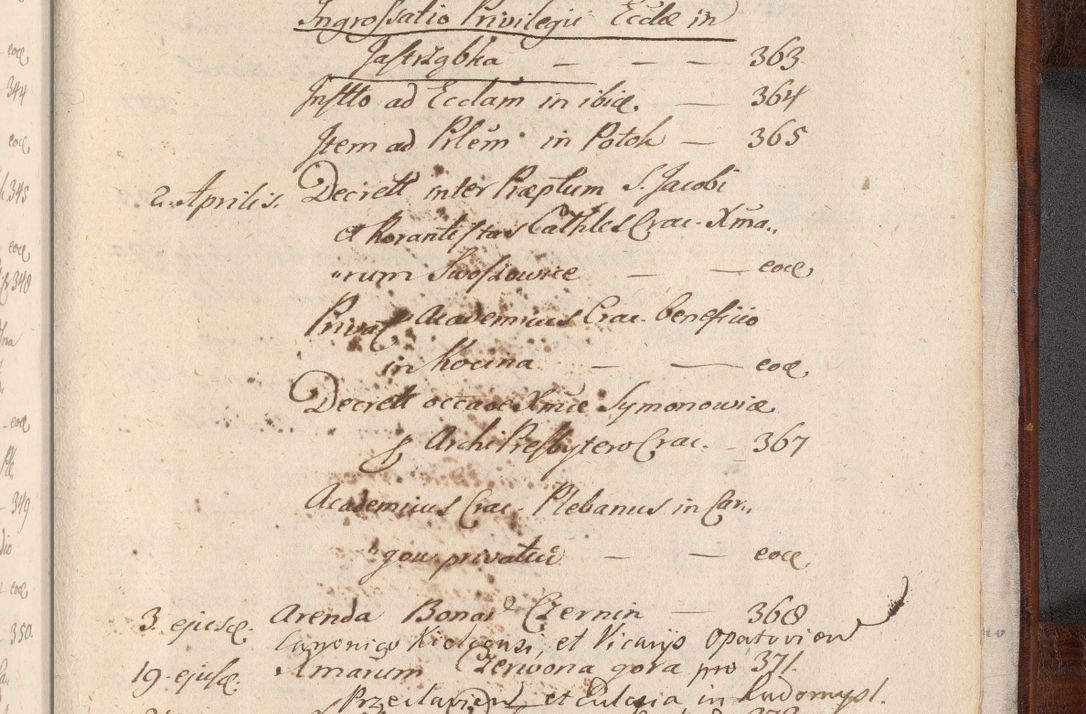 Ingrossatio Privilegii Eccłæ in
Jastrząbka — — — 363
Instto ad Ecclam in ibid. — 364
Item ad Prlem in Potok — 365
2. Aprilis. Decrett inter Præptum S. Jacobi
et Rorantistas Cathles Crac. Xma„
„rum Swoszowice — — eod.
Privat Academicus Crac. beneficio
in Kocina — — eod.
Decrett occaoe Xmæ Symonowiæ
p ArchiPresbytero Crac. — 367
Academicus Crac. Plebanus in Car„
„gow privatur — — eod.
3. ejusd. Arenda Bonor Czernin — 368
Canonico Kielcensi, et Vicarijs Opatovien
19. ejusd. Amanum Czerwona gora pro 371.
in Radomysl.
eod
344
eod
345
eod
348
eod
349
eod
350.